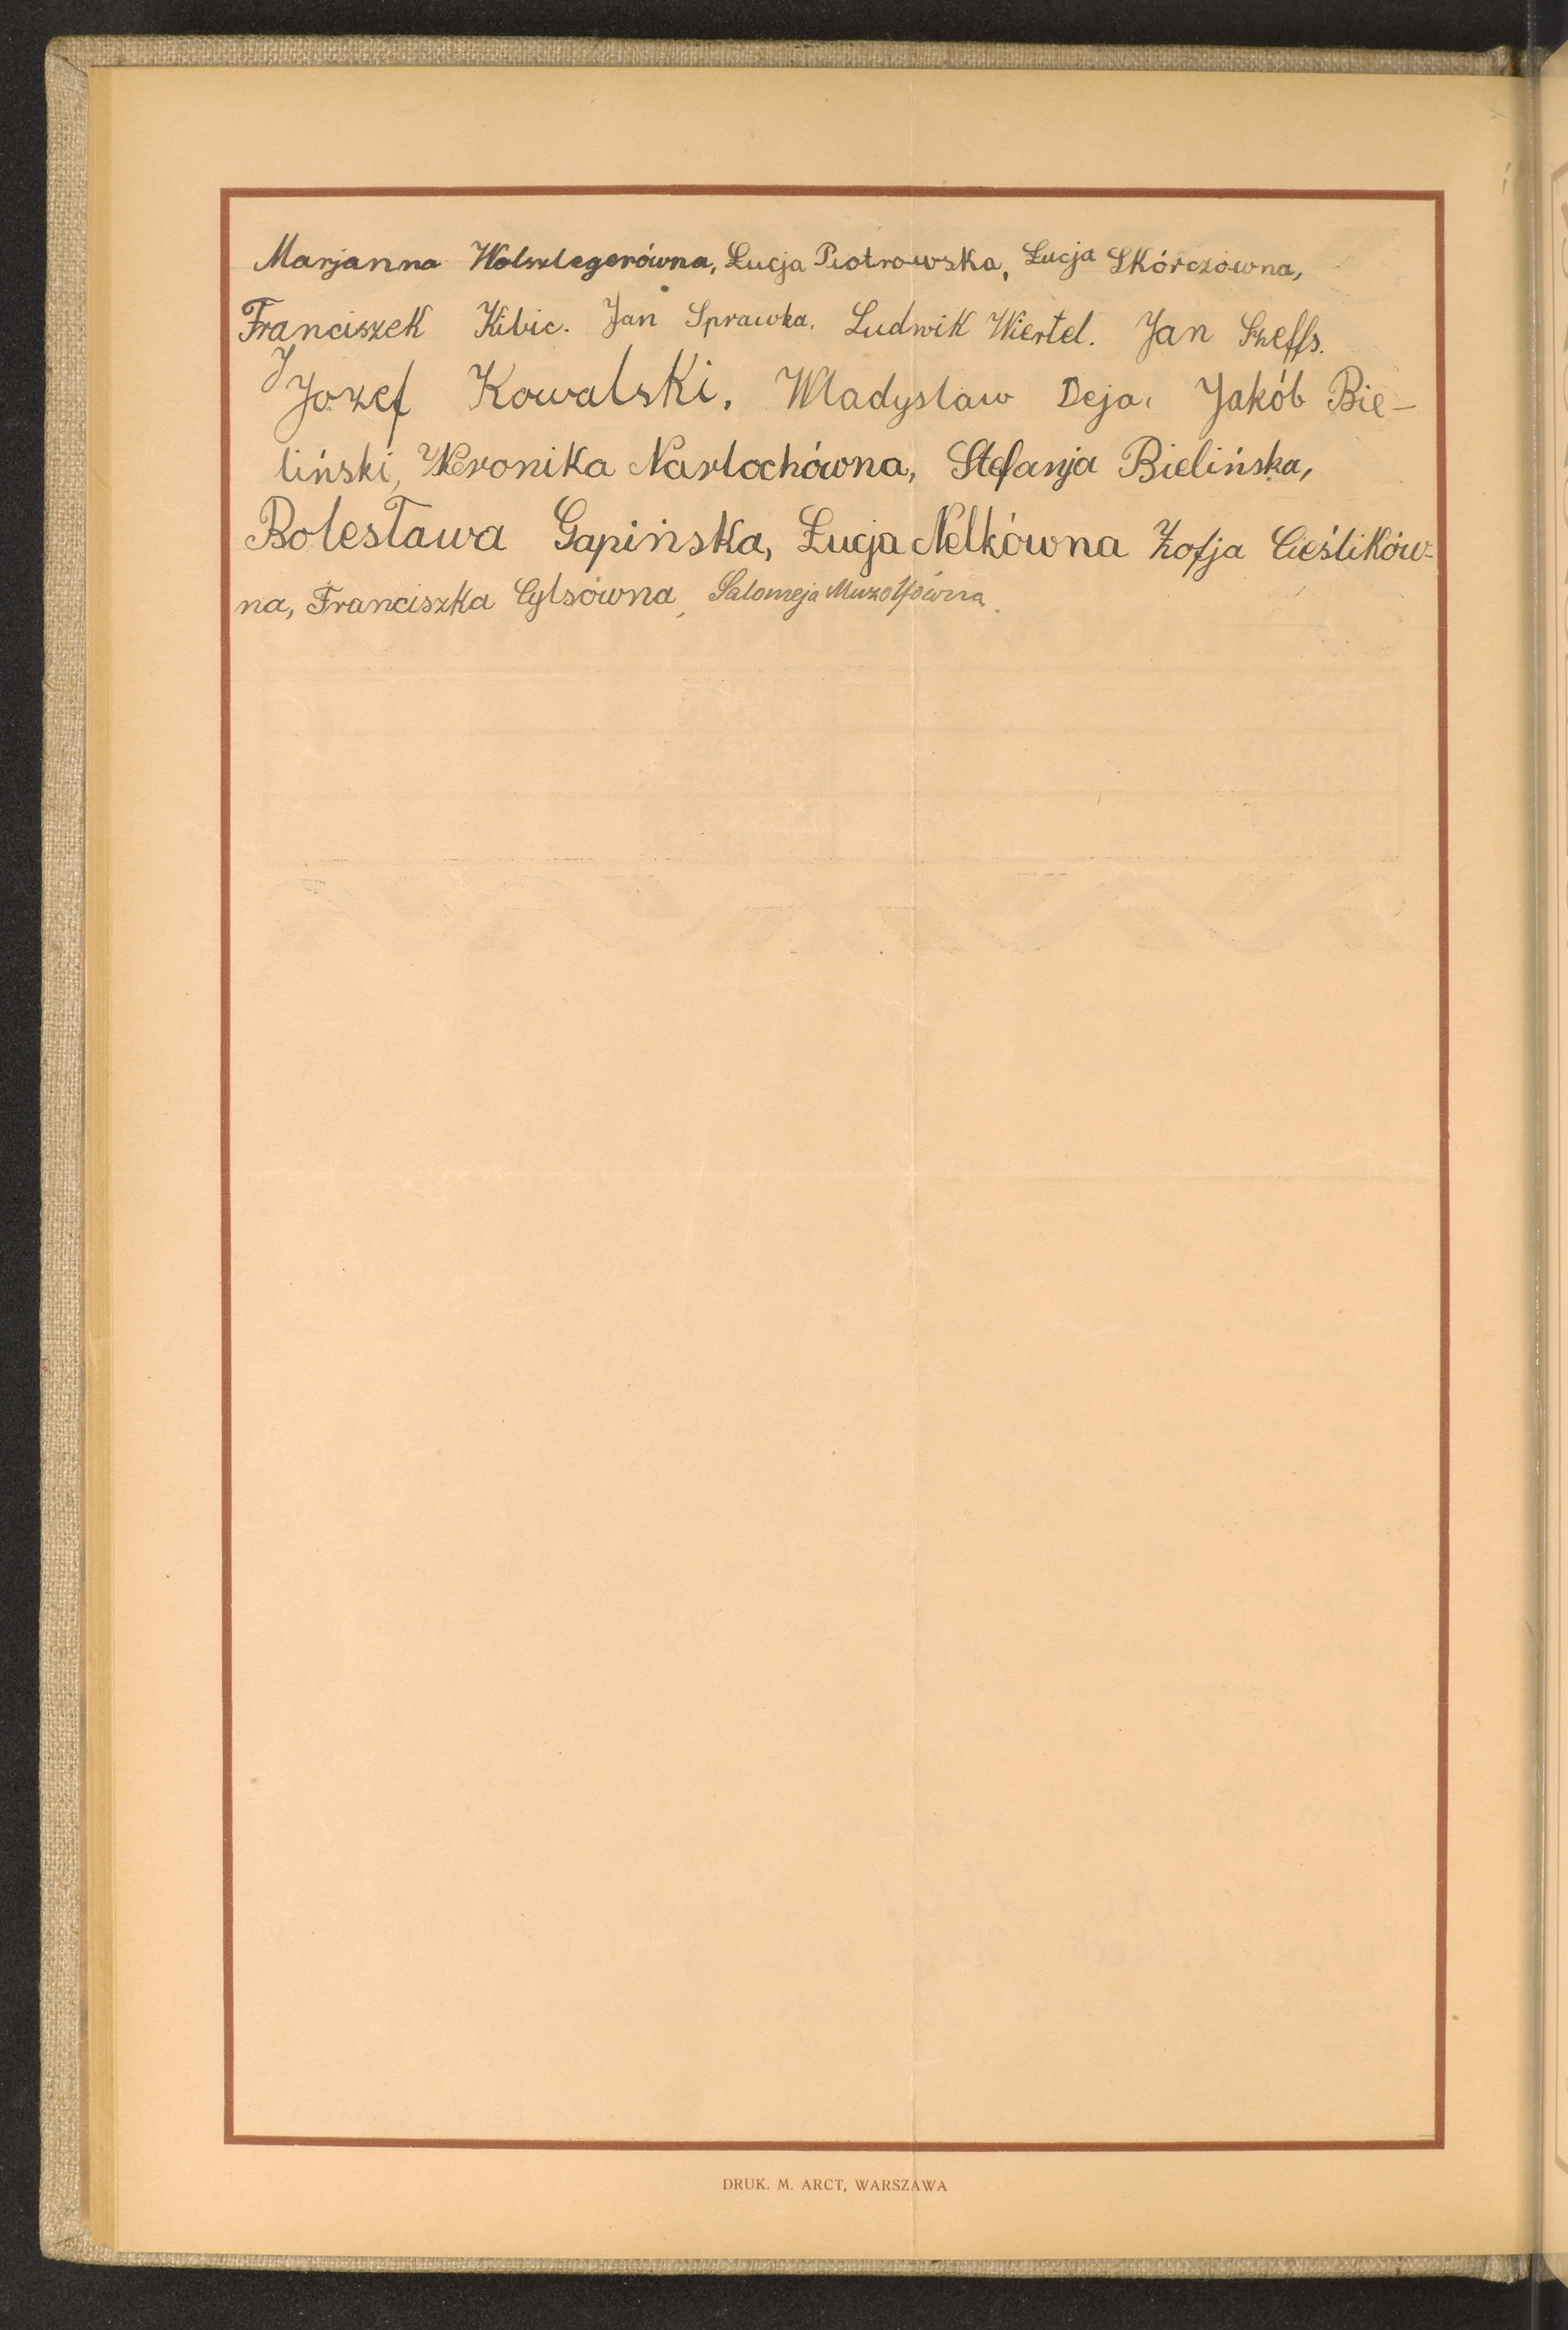 Marjanna Wolszlegerówna, Łucja Piotrowska, Łucja Skórczówna,
Franciszek Kibic. Jan Sprawka. Ludwik Wiertel. Jan Szeffs.
Jozef Kowalski. Wladyslaw Deja. Jakób Bie-
liński, Weronika Narlochówna, Stefanja Bielińska,
Bolesława Gapińska, Łucja Nelkówna Zofja Cieślików-
na, Franciszka Cylsówna, Salomeja Muzolfówna.
DRUK. M. ARCT, WARSZAWA